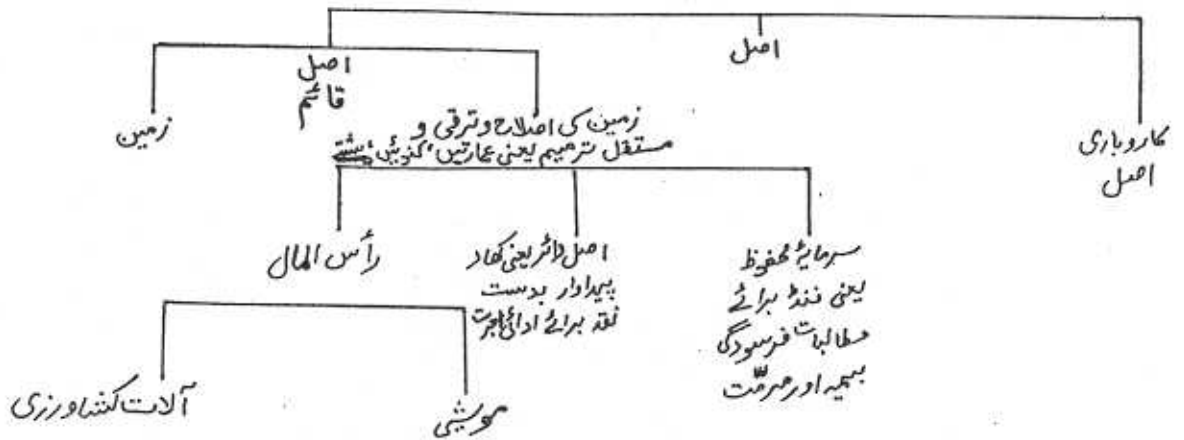 اصل
کاروباری
اصل
اصل
قائم
زمین کی اصلاح و ترقی و
مستقل ترمیم یعنی عمارتیں، کنوئیں، پشتے
زمین
سرمایۂ محفوظ
یعنی فنڈ برائے
مطالبات فرسودگی
بیمہ اور مرمّت
اصل دائر یعنی کھاد
پیداوار بدست
نقد برائے ادائی اجرت
رأس المال
مویشی
آلات کشاورزی